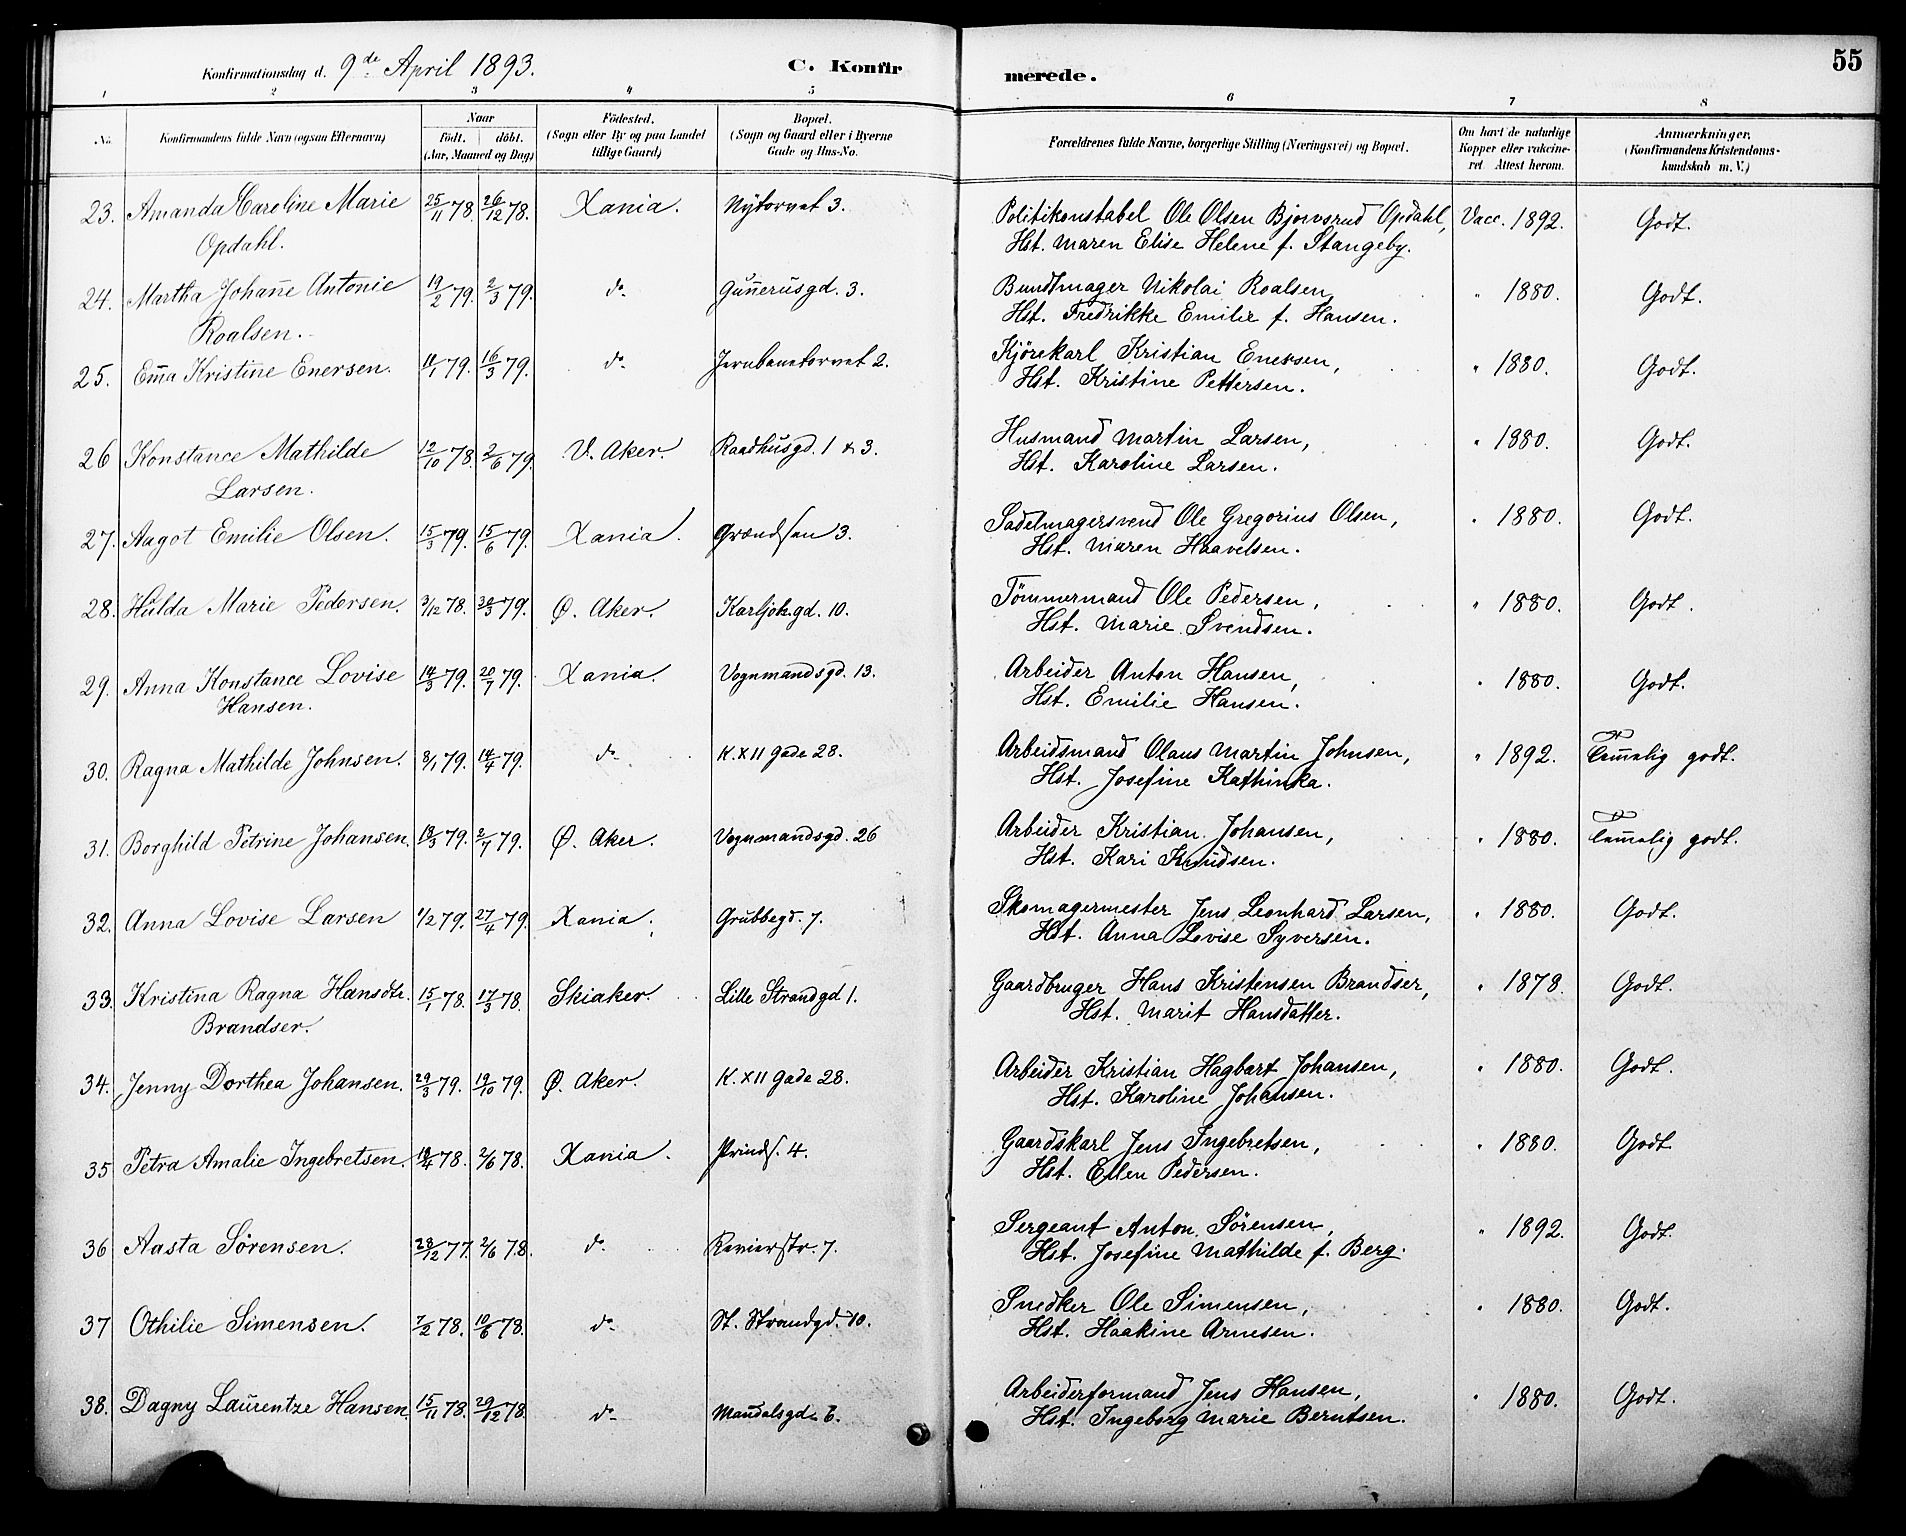 55
Konfirmationsdag d. 9de April 1893. C. Konfir merede.
1 2 3 4 5 6 7 8
No. Konfirmandens fulde Navn (ogsaa Efternavn) Naar født. døbt. (Aar, Maaned og Dag) Fødested. (Sogn eller By og paa Landet tillige Gaard) Bopæl. (Sogn og Gaard eller i Byerne Gade og Hus-No. Forældrenes fulde Navne, borgerlige Stilling (Næringsvei) og Bopæl. Om havt de naturlige Kopper eller vakcineret Attest herom. Anmærkninger. (Konfirmandens Kristendomskundskab m. V.)
23. Amanda Karoline Marie 25/11 78. 26/12 78. Xania. Nytorvet 3. Politikonstabel Ole Olsen Bjorvsrud Opdahl, Vacc. 1892. Godt.
Opdahl. Hst. Maren Elise Helene f. Stangeby.
24. Martha Johan̄e Antonie 19/2 79. 2/3 79. do Gun̄erusgd. 3. Bundtmager Nikolai Roalsen " 1880. Godt.
Roalsen. Hst. Fredrikke Emilie f. Hansen.
25. Em̄a Kristine Enersen. 11/1 79. 16/3 79. do Jernbanetorvet 2. Kjörekarl Kristian Enersen, " 1880. Godt.
Hst. Kristine Pettersen.
26 Konstance Mathilde 12/10 78. 2/6 79. V. Aker. Raadhusgd. 1 & 3. Husmand Martin Larsen, " 1880. Godt.
Larsen. Hst. Karoline Larsen.
27. Aagot Emilie Olsen. 15/3 79. 15/6 79. Xania. Grændsen 3. Sadelmagersvend Ole Gregorius Olsen, " 1880. Godt.
Hst. Maren Haavelsen.
28. Hulda Marie Pedersen. 3/12 78. 30/3 79. Ø. Aker. Karljoh.gd. 10. Tömmermand Ole Pedersen, " 1880. Godt.
Hst. Marie Svendsen.
29. Anna Konstance Lovise 14/3 79. 20/7 79. Xania. Vognmandsgd. 13. Arbeider Anton Hansen, " 1880. Godt.
Hansen. Hst. Emilie Hansen.
30. Ragna Mathilde Johnsen. 8/1 79. 14/4 79. do K. XII Gade 28. Arbeidsmand Olaus Martin Johnsen, " 1892. Tem̄elig godt.
Hst. Josefine Kathinka.
31. Borghild Petrine Johansen. 13/3 79. 2/7 79. Ø. Aker. Vognmandsgd. 26 Arbeider Kristian Johansen, " 1880. Tem̄elig godt.
Hst. Kari Knudsen.
32. Anna Lovise Larsen 1/2 79. 27/4 79. Xania. Grubbegd. 7. Skomagermester Jens Leonhard Larsen, " 1880. Godt.
Hst. Anna Lovise Syversen.
33. Kristina Ragna Hansdtr. 15/1 78. 17/3 78. Skiaker. Lille Strandgd 1. Gaardbruger Hans Kristensen Brandser, " 1878. Godt.
Brandser. Hst. Marit Hansdatter.
34. Jenny Dorthea Johansen. 29/3 79. 19/10 79. Ø. Aker. K. XII Gade 28. Arbeider Kristian Hagbart Johansen, " 1880. Godt.
Hst. Karoline Johansen.
35 Petra Amalie Ingebretsen. 19/4 78. 2/6 78. Xania. Prinds. 4. Gaardskarl Jens Ingebretsen, " 1880. Godt
Hst. Ellen Pedersen.
36 Aasta Sörensen. 28/12 77. 2/6 78. do Revierstr. 7. Sergeant Anton Sörensen, " 1892. Godt.
Hst. Josefine Mathilde f. Berg.
37 Othilie Simensen. 7/2 78. 10/6 78. do St. Strandgd. 10. Snedker Ole Simensen, " 1880. Godt.
Hst. Haakine Arnesen.
38. Dagny Laurentze Hansen. 15/11 78. 29/12 78. do Mandalsgd. 6. Arbeiderformand Jens Hansen, " 1880. Godt.
Hst. Ingeborg Marie Berntsen.